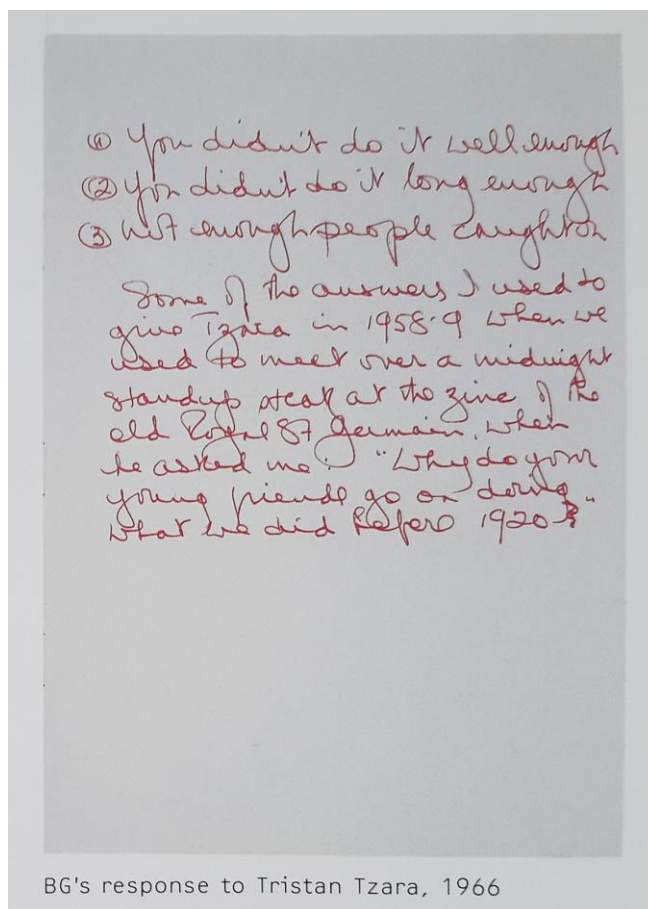 ① You didn't do it well enough
② You didn't do it long enough
③ Not enough people caught on
Some of the answers I used to
give Tzara in 1958-9 when we
used to meet over a midnight
standup steak at the zinc of the
old Royal St Germain, when
he asked me: "Why do your
young friends go on doing
what we did before 1920?"
BG's response to Tristan Tzara, 1966